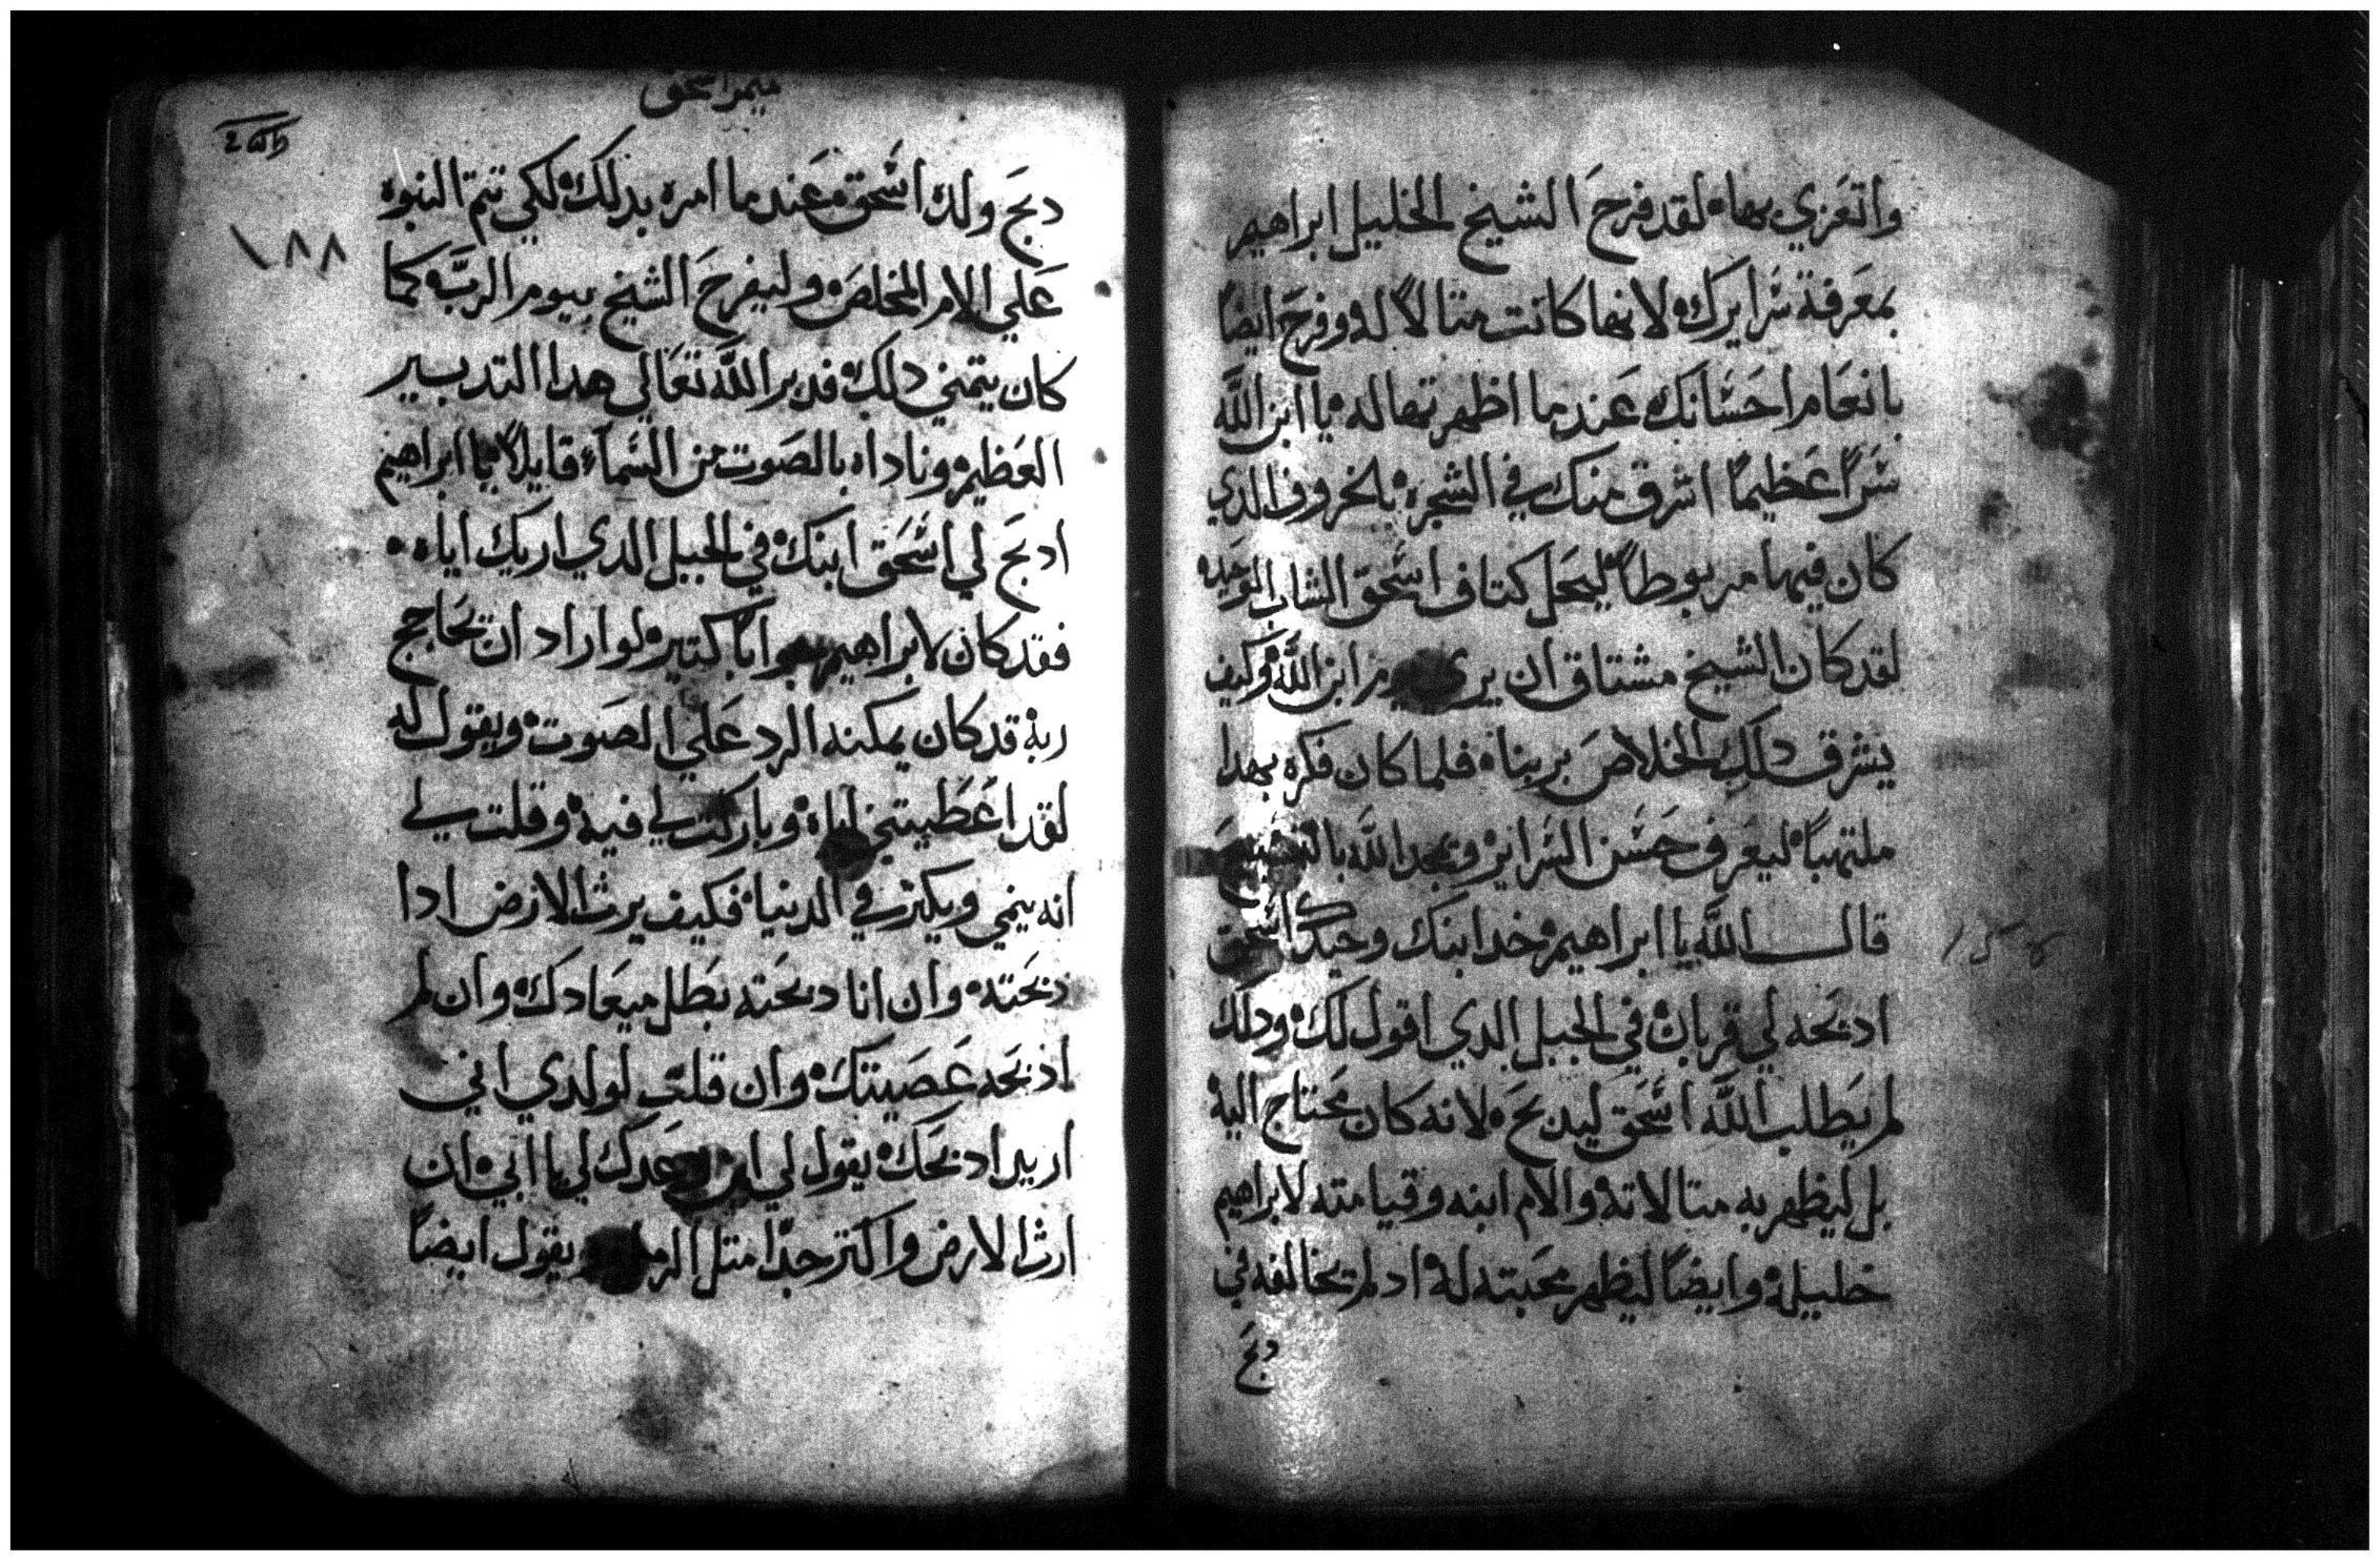 واتعزي بها لقد فرح الشيخ الخليل ابراهيم
بمعرفة سرايرك لانها كانت متالاً له وفرح ايضاً
بانعام احسانك عندما اظهرتها له يا ابن الله
سراً عظيماً اشرق منك في الشجره بالخروف الدي
كان فيها مربوطاً ليحل كتاف اسحق الشاب الوحيد
لقد كان الشيخ مشتاق ان يري يوم ابن الله وكيف
يشرق دلك الخلاص بربناه فلما كان فكره بهدا
ملتهباً ليعرف حسن السراير ويمجد الله
قال الله يا ابراهيم خد ابنك وحيدك اسحق
ادبحه لي قربان في الجبل الدي اقول لك ودلك
لم يطلب الله اسحق ليدبح لانه كان محتاج اليه
بل ليظهر به متالاته والام ابنه وقيامته لابراهيم
خليله وايضاً ليظهر محبته له اد لم يخالفه في
دبح
ميمر اسحق
١٨٨
دبح ولده اسحق عندما امره بدلك لكي تتم النبوه
علي الامر المخلص وليفرح الشيخ بيوم الرب كما
كان يتمني دلك فدبر الله تعالي هدا التدبير
العظيم وناداه بالصوت من السماء قايلاً يا ابراهيم
ادبح لي اسحق ابنك في الجبل الدي اريك اياه
فقد كان لابراهيم جواباً كتيره لو اراد ان يحاجج
ربه قد كان يمكنه الرد علي الصوت ويقول له
لقد اعطيتني اياه وباركت لي فيه وقلت لي
انه ينمي ويكتر في الدنيا فكيف يرث الارض ادا
دبحته وان انا دبحته بطل ميعادك وان لم
اذبحه عصيتك وان قلت لولدي اني
اريد ادبحك يقول لي اين وعدك لي يا ابي ان
ارث الارض واكتر جداً متل الرمل ويقول ايضاً